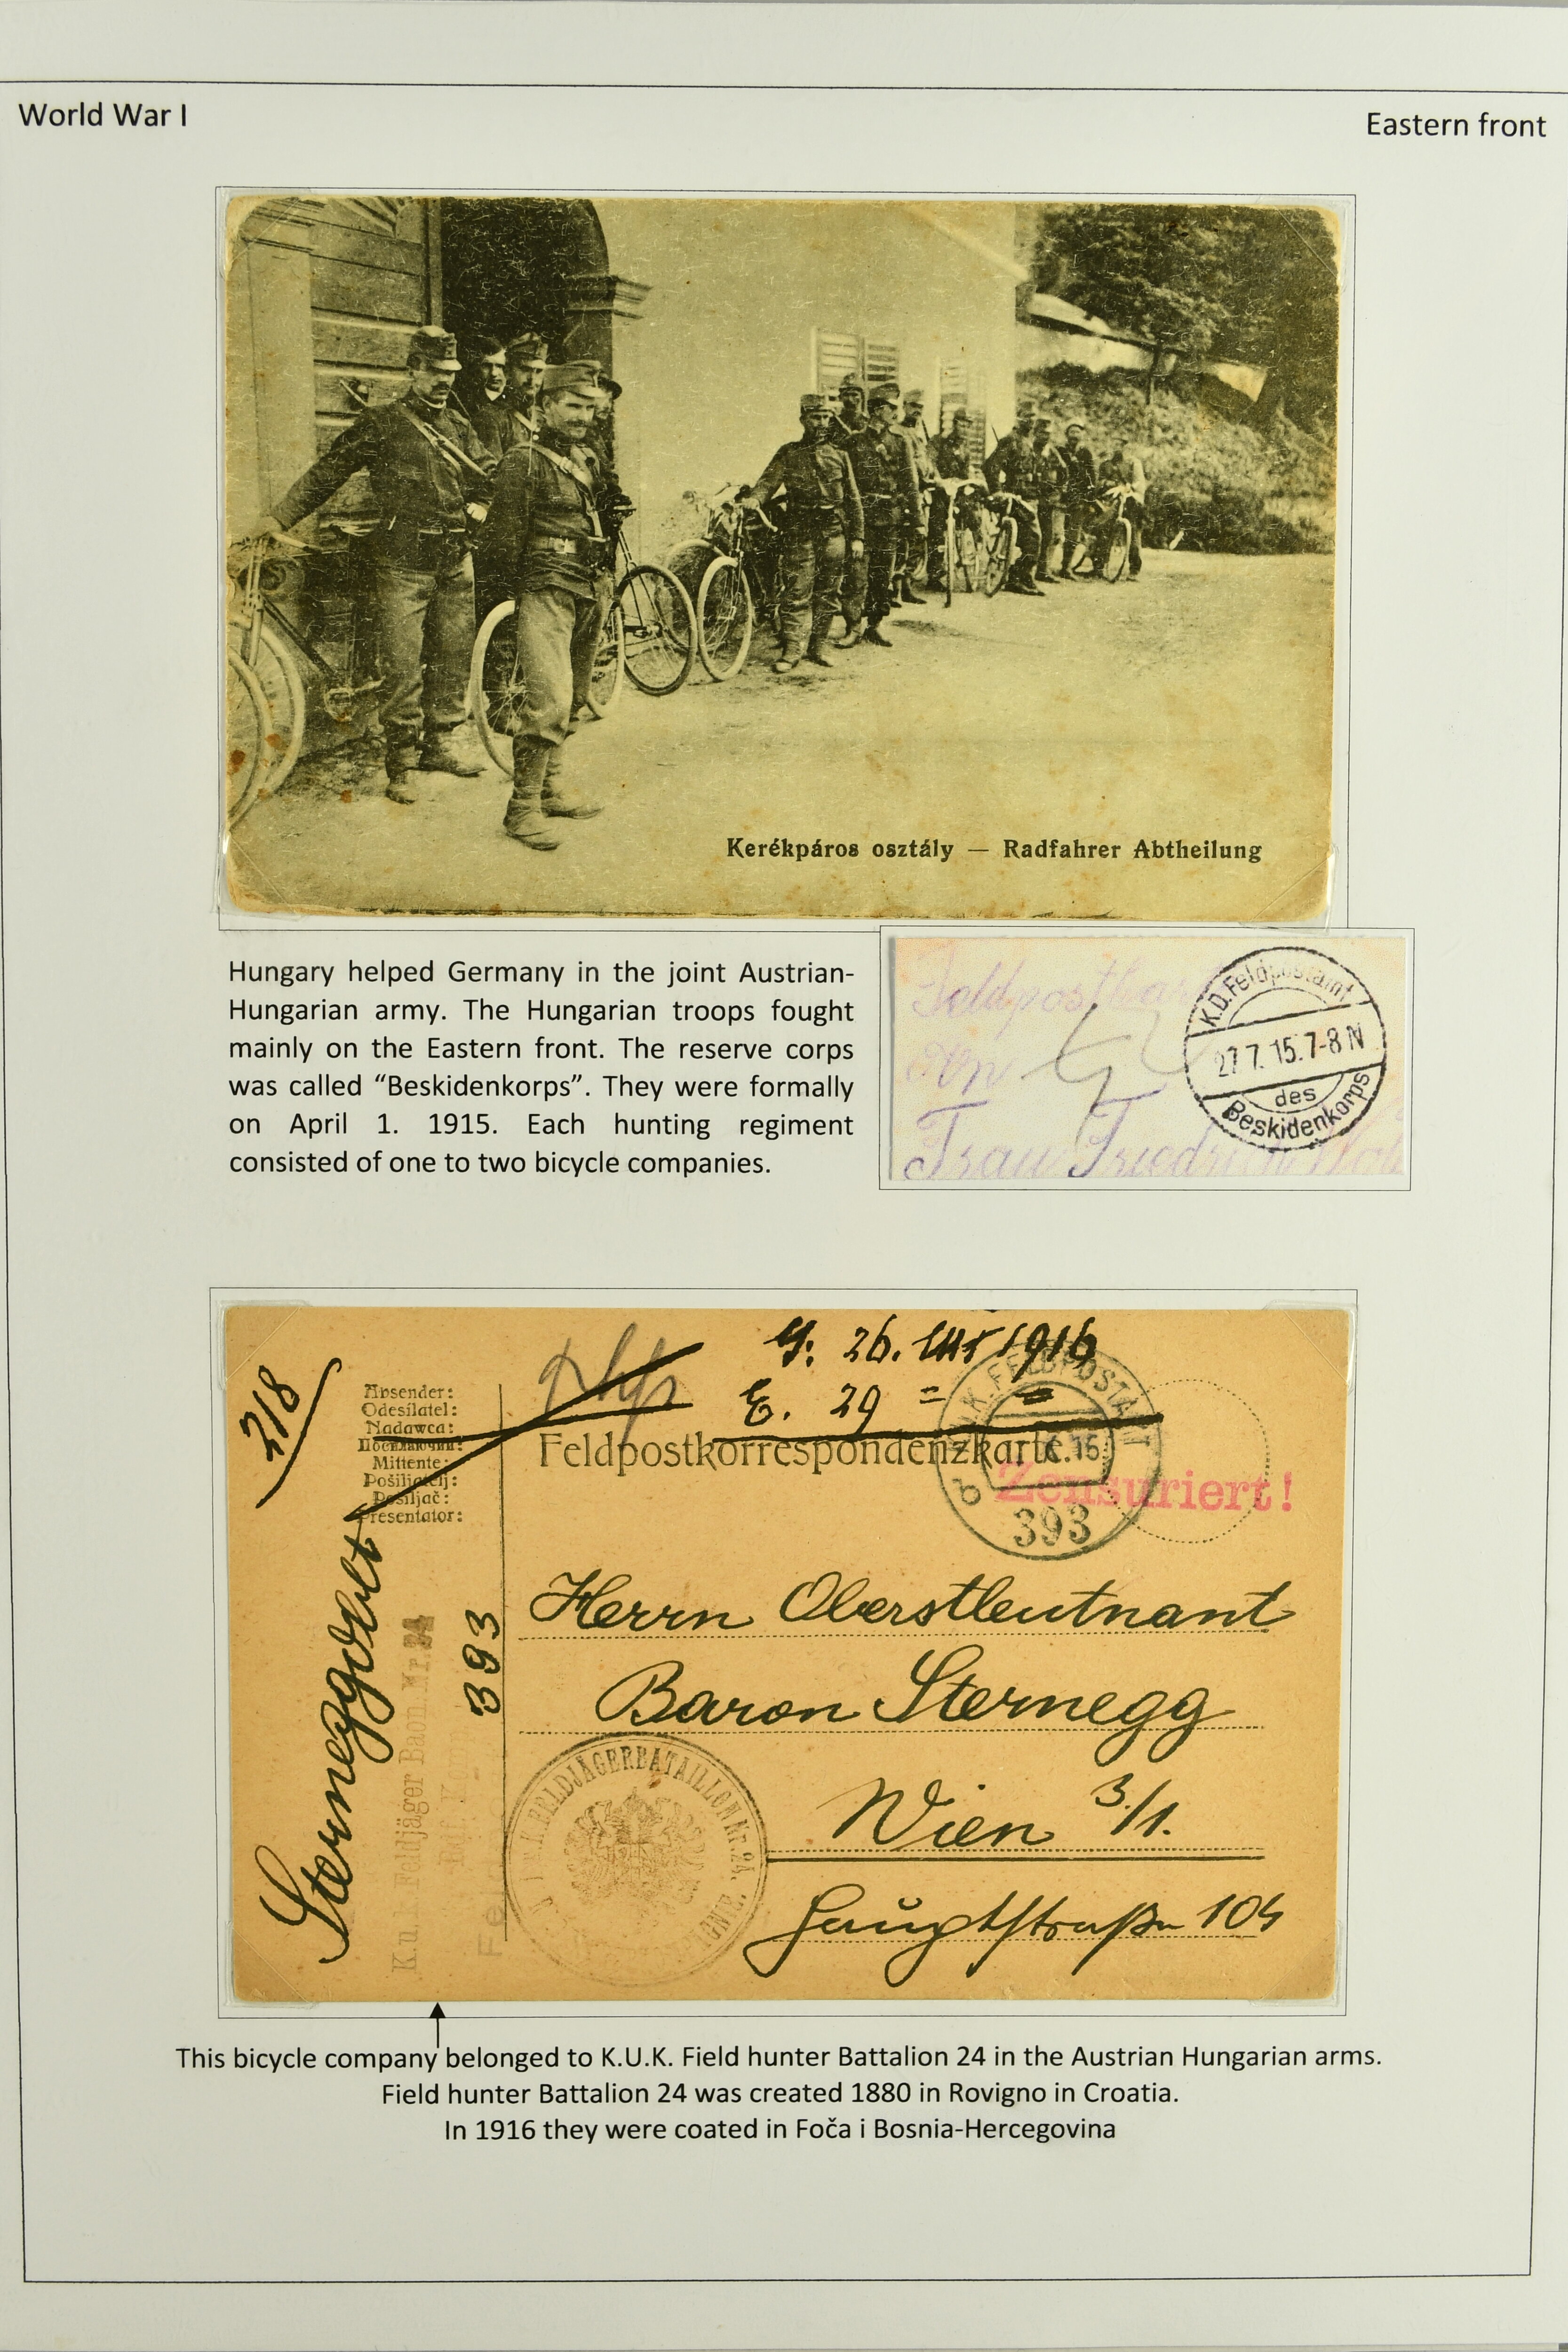 World War I
Eastern front
Kerékpáros osztály — Radfahrer Abtheilung
Hungary helped Germany in the joint Austrian-
Hungarian army. The Hungarian troops fought
mainly on the Eastern front. The reserve corps
was called “Beskidenkorps”. They were formally
on April 1. 1915. Each hunting regiment
consisted of one to two bicycle companies.
K.D. Feldpostamt
27.7.15.7-8 N
des
Beskidenkorps
An
Frau Friedrich
218
26. 1916
E. 29 =
Absender:
Odesílatel:
Nadawca:
Mittente:
Pošiljatelj:
Pošiljač:
Presentator:
Feldpostkorrespondenzkarte.
K. FELDPOSTAMT
b
393
Zensuriert!
Herrn Oberstleutnant
Baron Sternegg
Wien 3/1.
Hauptstraße 104
Sternegg
K.u.k. Feldjäger Baon Nr. 24
393
FELDJÄGERBATAILLON Nr. 24.
This bicycle company belonged to K.U.K. Field hunter Battalion 24 in the Austrian Hungarian arms.
Field hunter Battalion 24 was created 1880 in Rovigno in Croatia.
In 1916 they were coated in Foča i Bosnia-Hercegovina